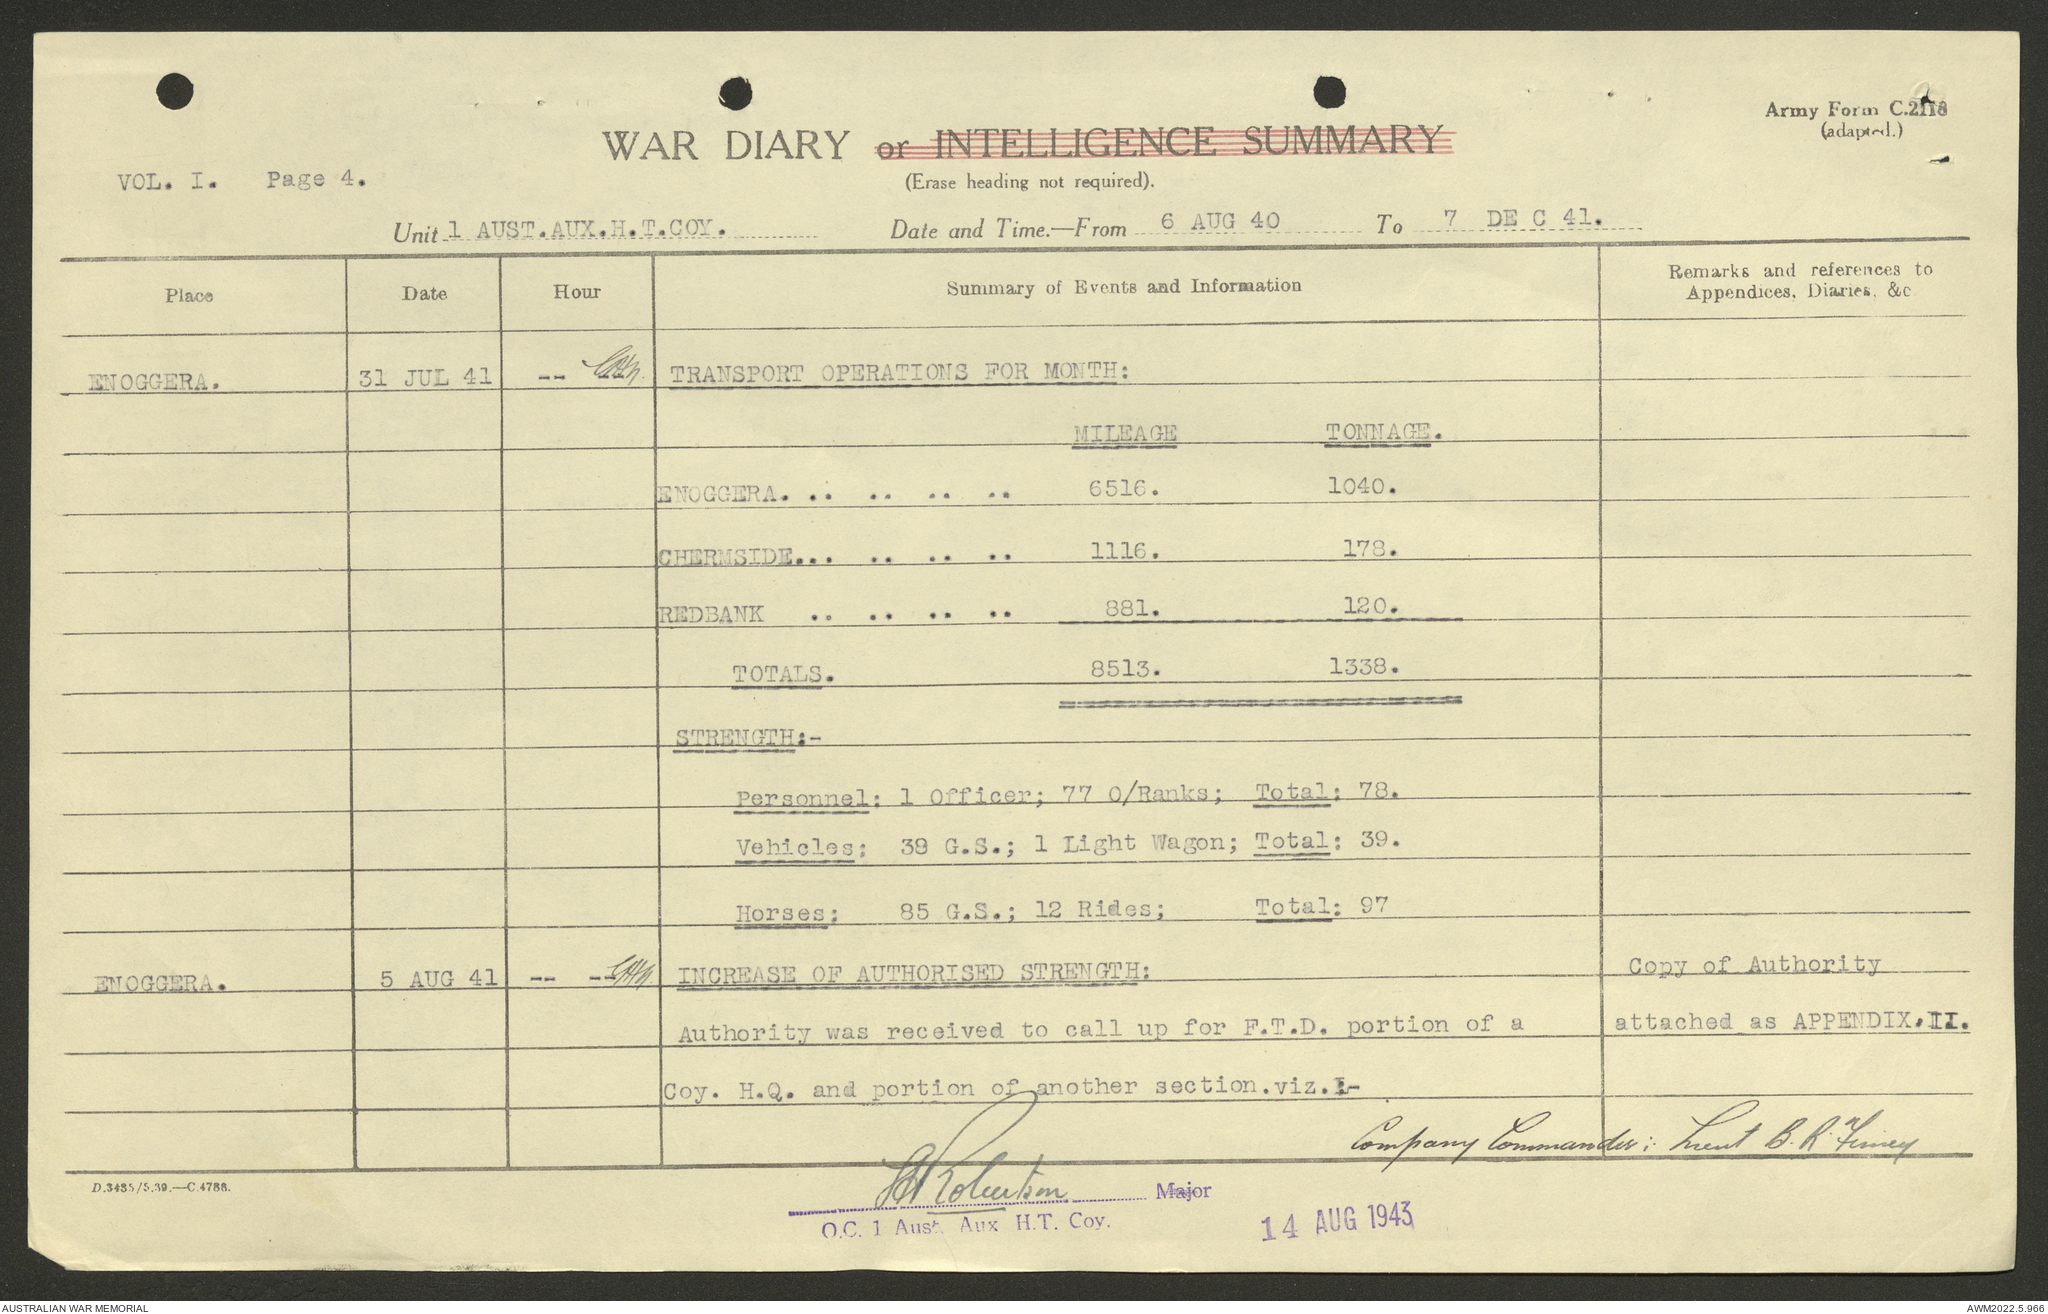 Army Form C.2118
(adapted.)
WAR DIARY or INTELLIGENCE SUMMARY
(Erase heading not required).
VOL. I. Page 4.
Unit 1 AUST.AUX.H.T.COY. Date and Time.—From 6 AUG 40 To 7 DEC 41.
Place Date Hour Summary of Events and Information Remarks and references to Appendices, Diaries, &c
ENOGGERA. 31 JUL 41 -- -- TRANSPORT OPERATIONS FOR MONTH:
MILEAGE TONNAGE.
ENOGGERA. .. .. .. .. 6516. 1040.
CHERMSIDE... .. .. .. 1116. 178.
REDBANK .. .. .. .. 881. 120.
TOTALS. 8513. 1338.
STRENGTH:-
Personnel: 1 Officer; 77 O/Ranks; Total: 78.
Vehicles: 38 G.S.; 1 Light Wagon; Total: 39.
Horses: 85 G.S.; 12 Rides; Total: 97
ENOGGERA. 5 AUG 41 -- -- INCREASE OF AUTHORISED STRENGTH: Copy of Authority
Authority was received to call up for F.T.D. portion of a attached as APPENDIX.II.
Coy. H.Q. and portion of another section.viz.:-
Company Commander: Lieut B. R. Finney
D.3485/5.39.—C.4788.
Robertson Major
O.C. 1 Aust. Aux H.T. Coy.
14 AUG 1943
AUSTRALIAN WAR MEMORIAL AWM2022.5.966